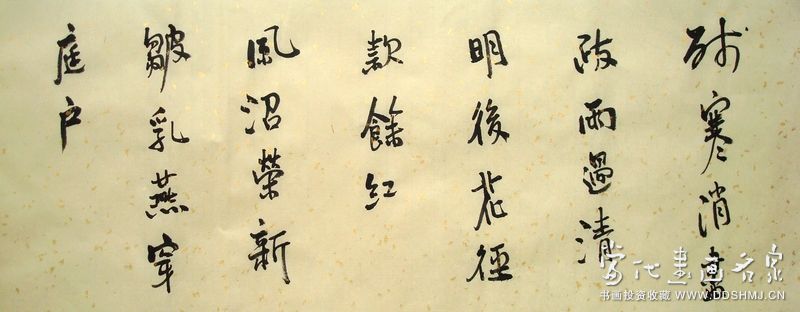 残寒消盡
疏雨過清
明後花徑
款餘紅
風沼榮新
皺乳燕穿
庭户
當代書画名家
书画投资收藏 WWW.DDSHMJ.CN